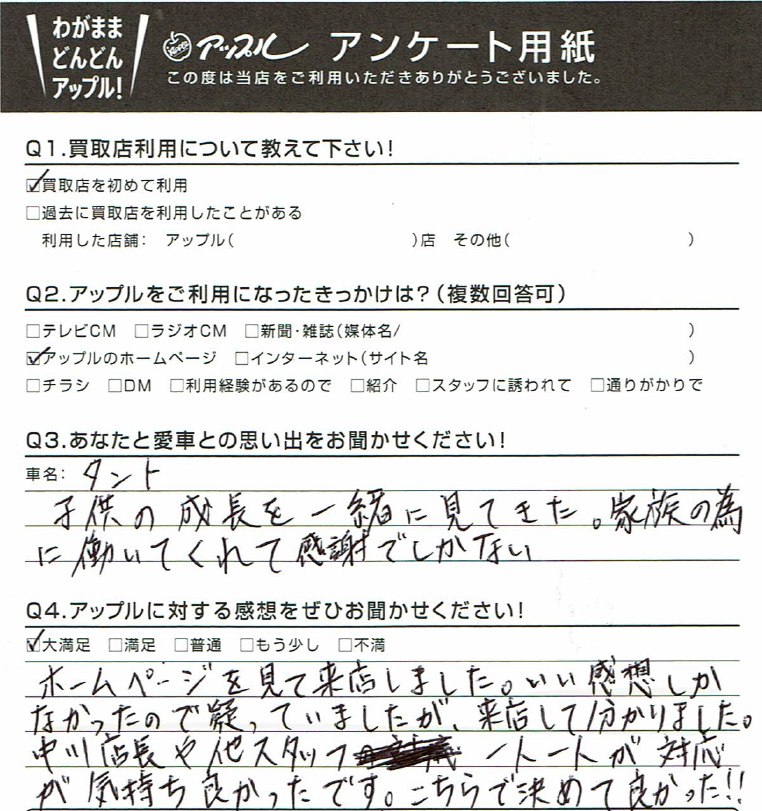 わがまま
どんどん
アップル!
Apple アップル アンケート用紙
この度は当店をご利用いただきありがとうございました。
Q1.買取店利用について教えて下さい!
☑買取店を初めて利用
□過去に買取店を利用したことがある
利用した店舗: アップル( )店 その他( )
Q2.アップルをご利用になったきっかけは?(複数回答可)
□テレビCM □ラジオCM □新聞・雑誌(媒体名/ )
☑アップルのホームページ □インターネット(サイト名 )
□チラシ □DM □利用経験があるので □紹介 □スタッフに誘われて □通りがかりで
Q3.あなたと愛車との思い出をお聞かせください!
車名: タント
子供の成長を一緒に見てきた。家族の為
に働いてくれて感謝でしかない
Q4.アップルに対する感想をぜひお聞かせください!
☑大満足 □満足 □普通 □もう少し □不満
ホームページを見て来店しました。いい感想しか
なかったので疑っていましたが、来店して分かりました。
中川店長や他スタッフ 一人一人が対応
が気持ち良かったです。こちらで決めて良かった!!